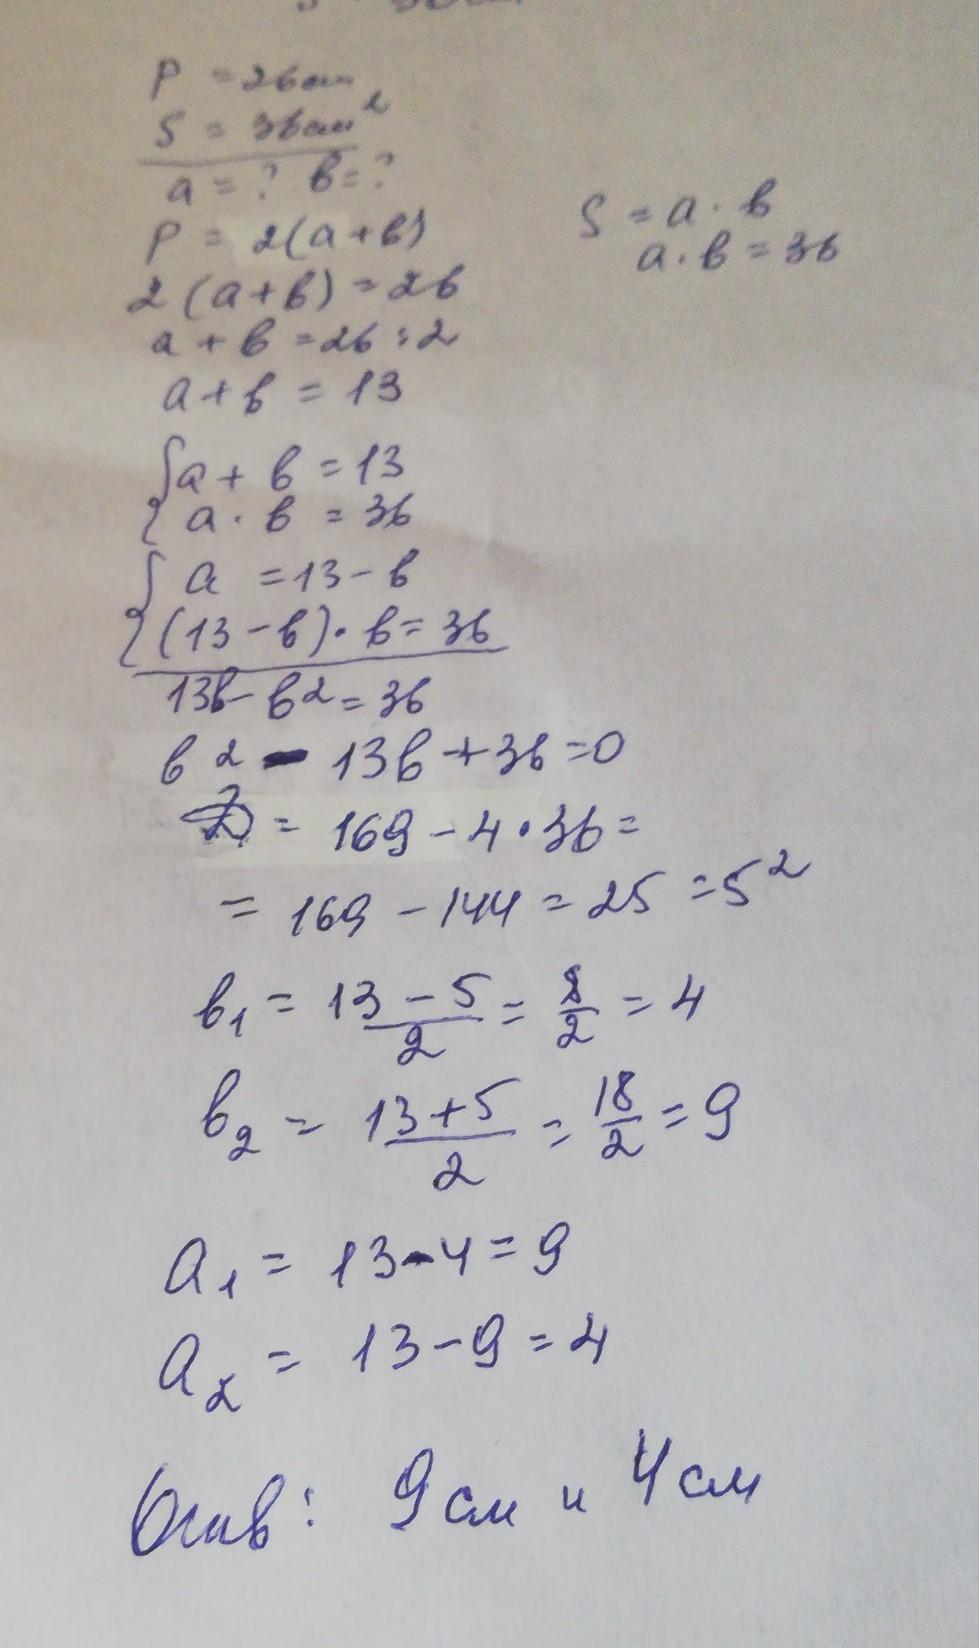 P = 26см
S = 36см²
a = ? в = ?
P = 2(a+в)
S = a · в
a · в = 36
2(a+в) = 26
a + в = 26 : 2
a + в = 13
{ a + в = 13
a · в = 36
{ a = 13 - в
(13 - в) · в = 36
13в - в² = 36
в² - 13в + 36 = 0
D = 169 - 4 · 36 =
= 169 - 144 = 25 = 5²
в₁ = (13 - 5)/2 = 8/2 = 4
в₂ = (13 + 5)/2 = 18/2 = 9
a₁ = 13 - 4 = 9
a₂ = 13 - 9 = 4
Отв: 9см и 4см